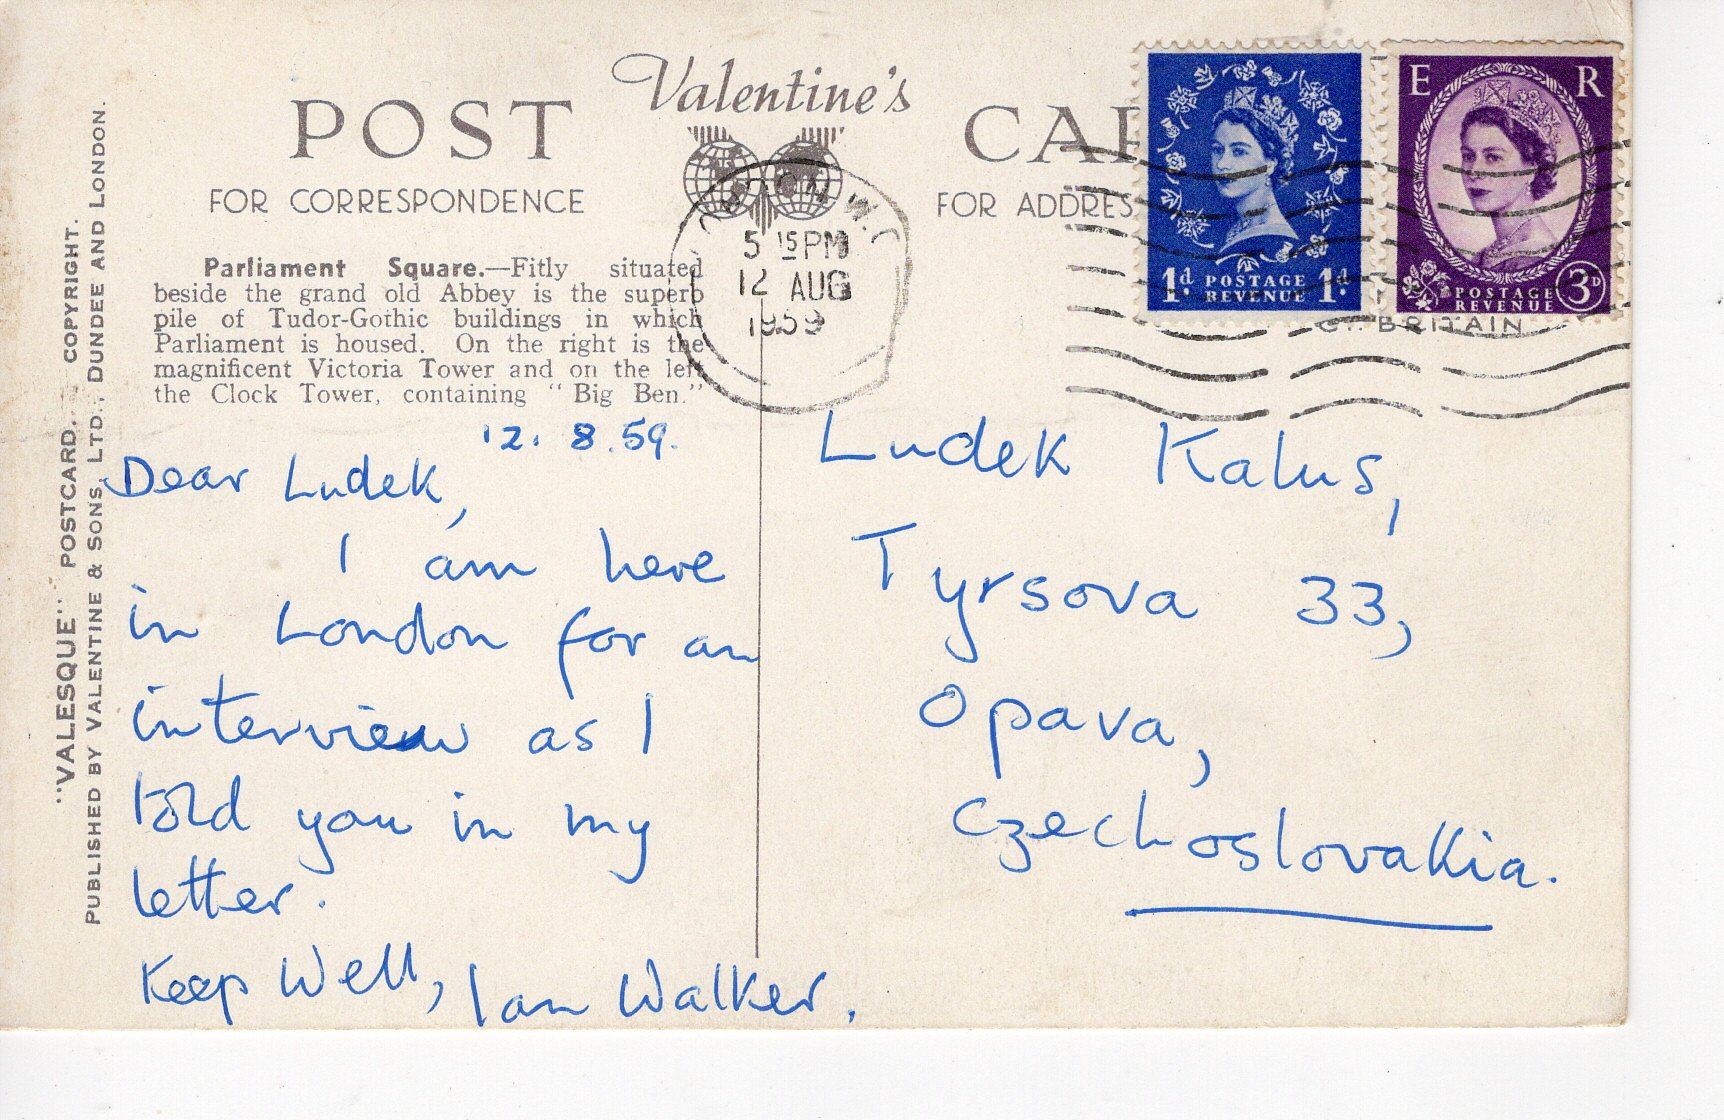 POST Valentine's CAR
FOR CORRESPONDENCE FOR ADDRES
Parliament Square.—Fitly situated
beside the grand old Abbey is the superb
pile of Tudor-Gothic buildings in which
Parliament is housed. On the right is the
magnificent Victoria Tower and on the left
the Clock Tower, containing "Big Ben."
"VALESQUE" POSTCARD. COPYRIGHT.
PUBLISHED BY VALENTINE & SONS, LTD., DUNDEE AND LONDON.
LONDON W.C
5 15 PM
12 AUG
1959
1d. POSTAGE 1d.
REVENUE
E R
POSTAGE 3D
REVENUE
GT. BRITAIN
12. 8. 59.
Dear Ludek,
I am here
in London for an
interview as I
told you in my
letter.
Keep Well, Ian Walker.
Ludek Kalus,
Tyrsova 33,
Opava,
Czechoslovakia.